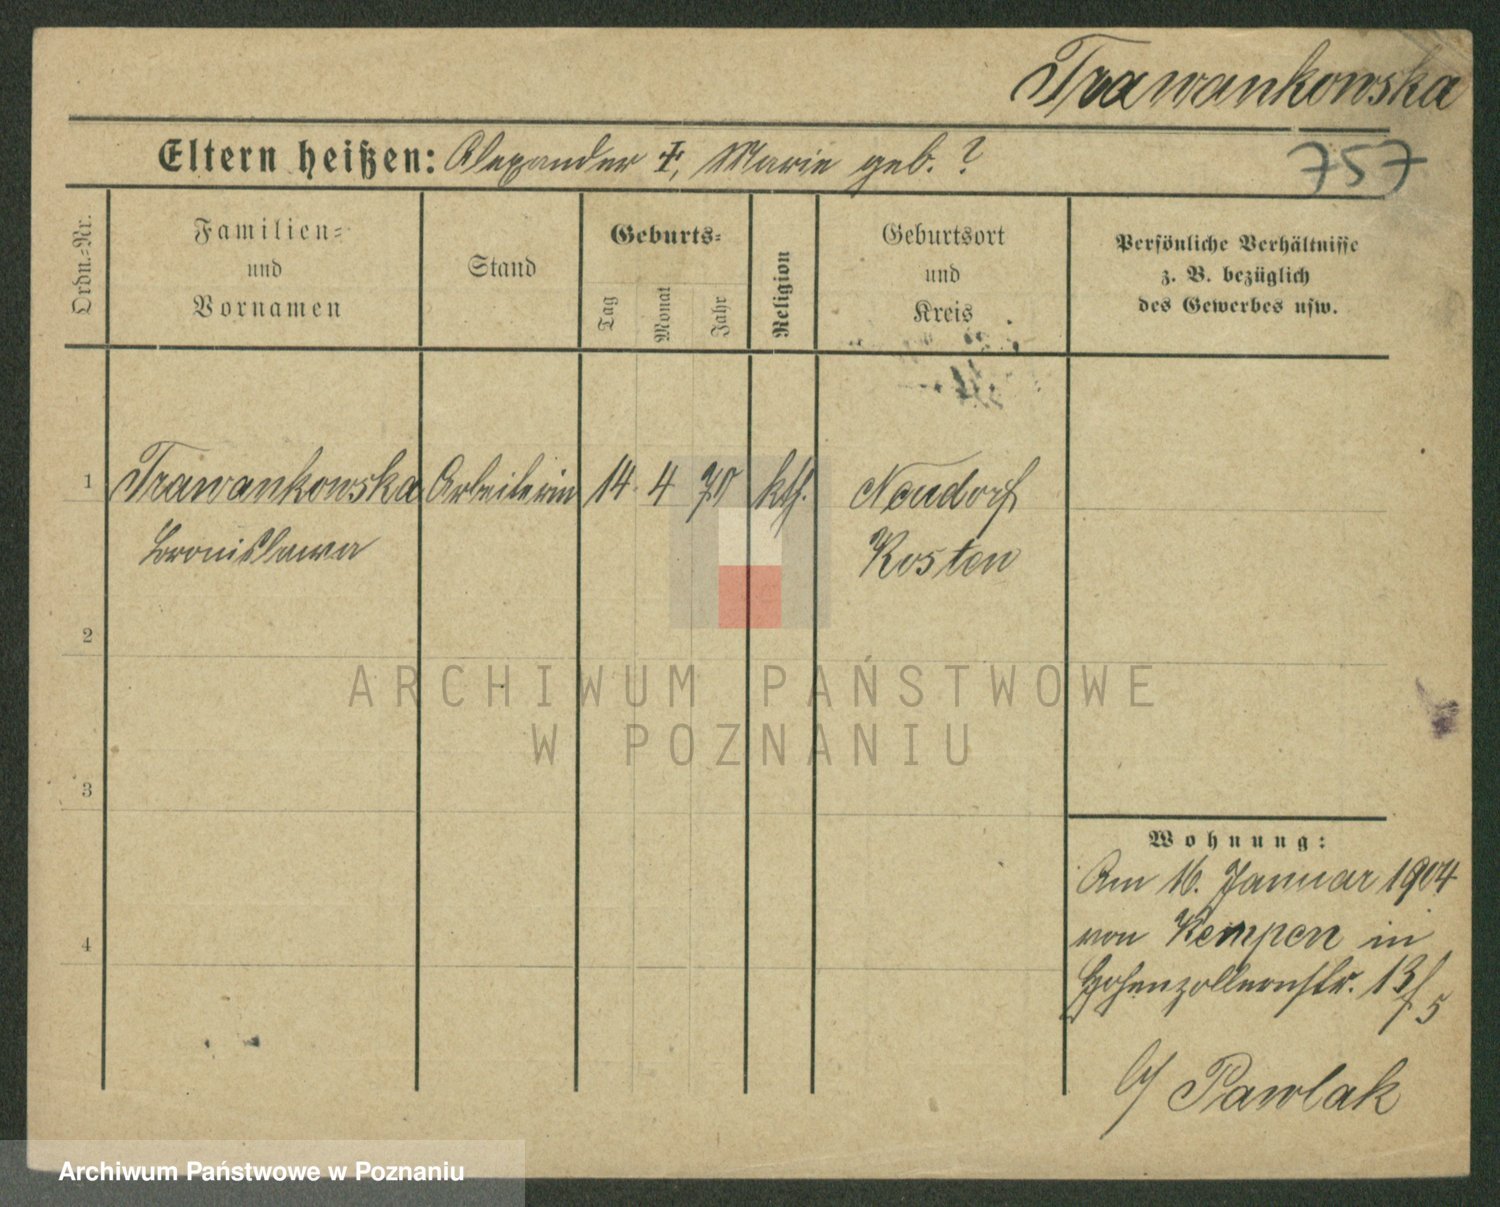 Trawankowska
757
Eltern heißen: Alexander +, Marie geb. ?
Ordn.-Nr.
Familien-
und
Vornamen
Stand
Geburts-
Tag
Monat
Jahr
Religion
Geburtsort
und
Kreis
Persönliche Verhältnisse
z. B. bezüglich
des Gewerbes usw.
1
Trawankowska Arbeiterin 14. 4 70 kth. Neudorf
Bronislawa Kosten
2
ARCHIWUM PAŃSTWOWE
W POZNANIU
3
Wohnung:
Am 16. Januar 1904
von Kempen in
Hohenzollernstr. 13
5
b/ Pawlak
4
Archiwum Państwowe w Poznaniu